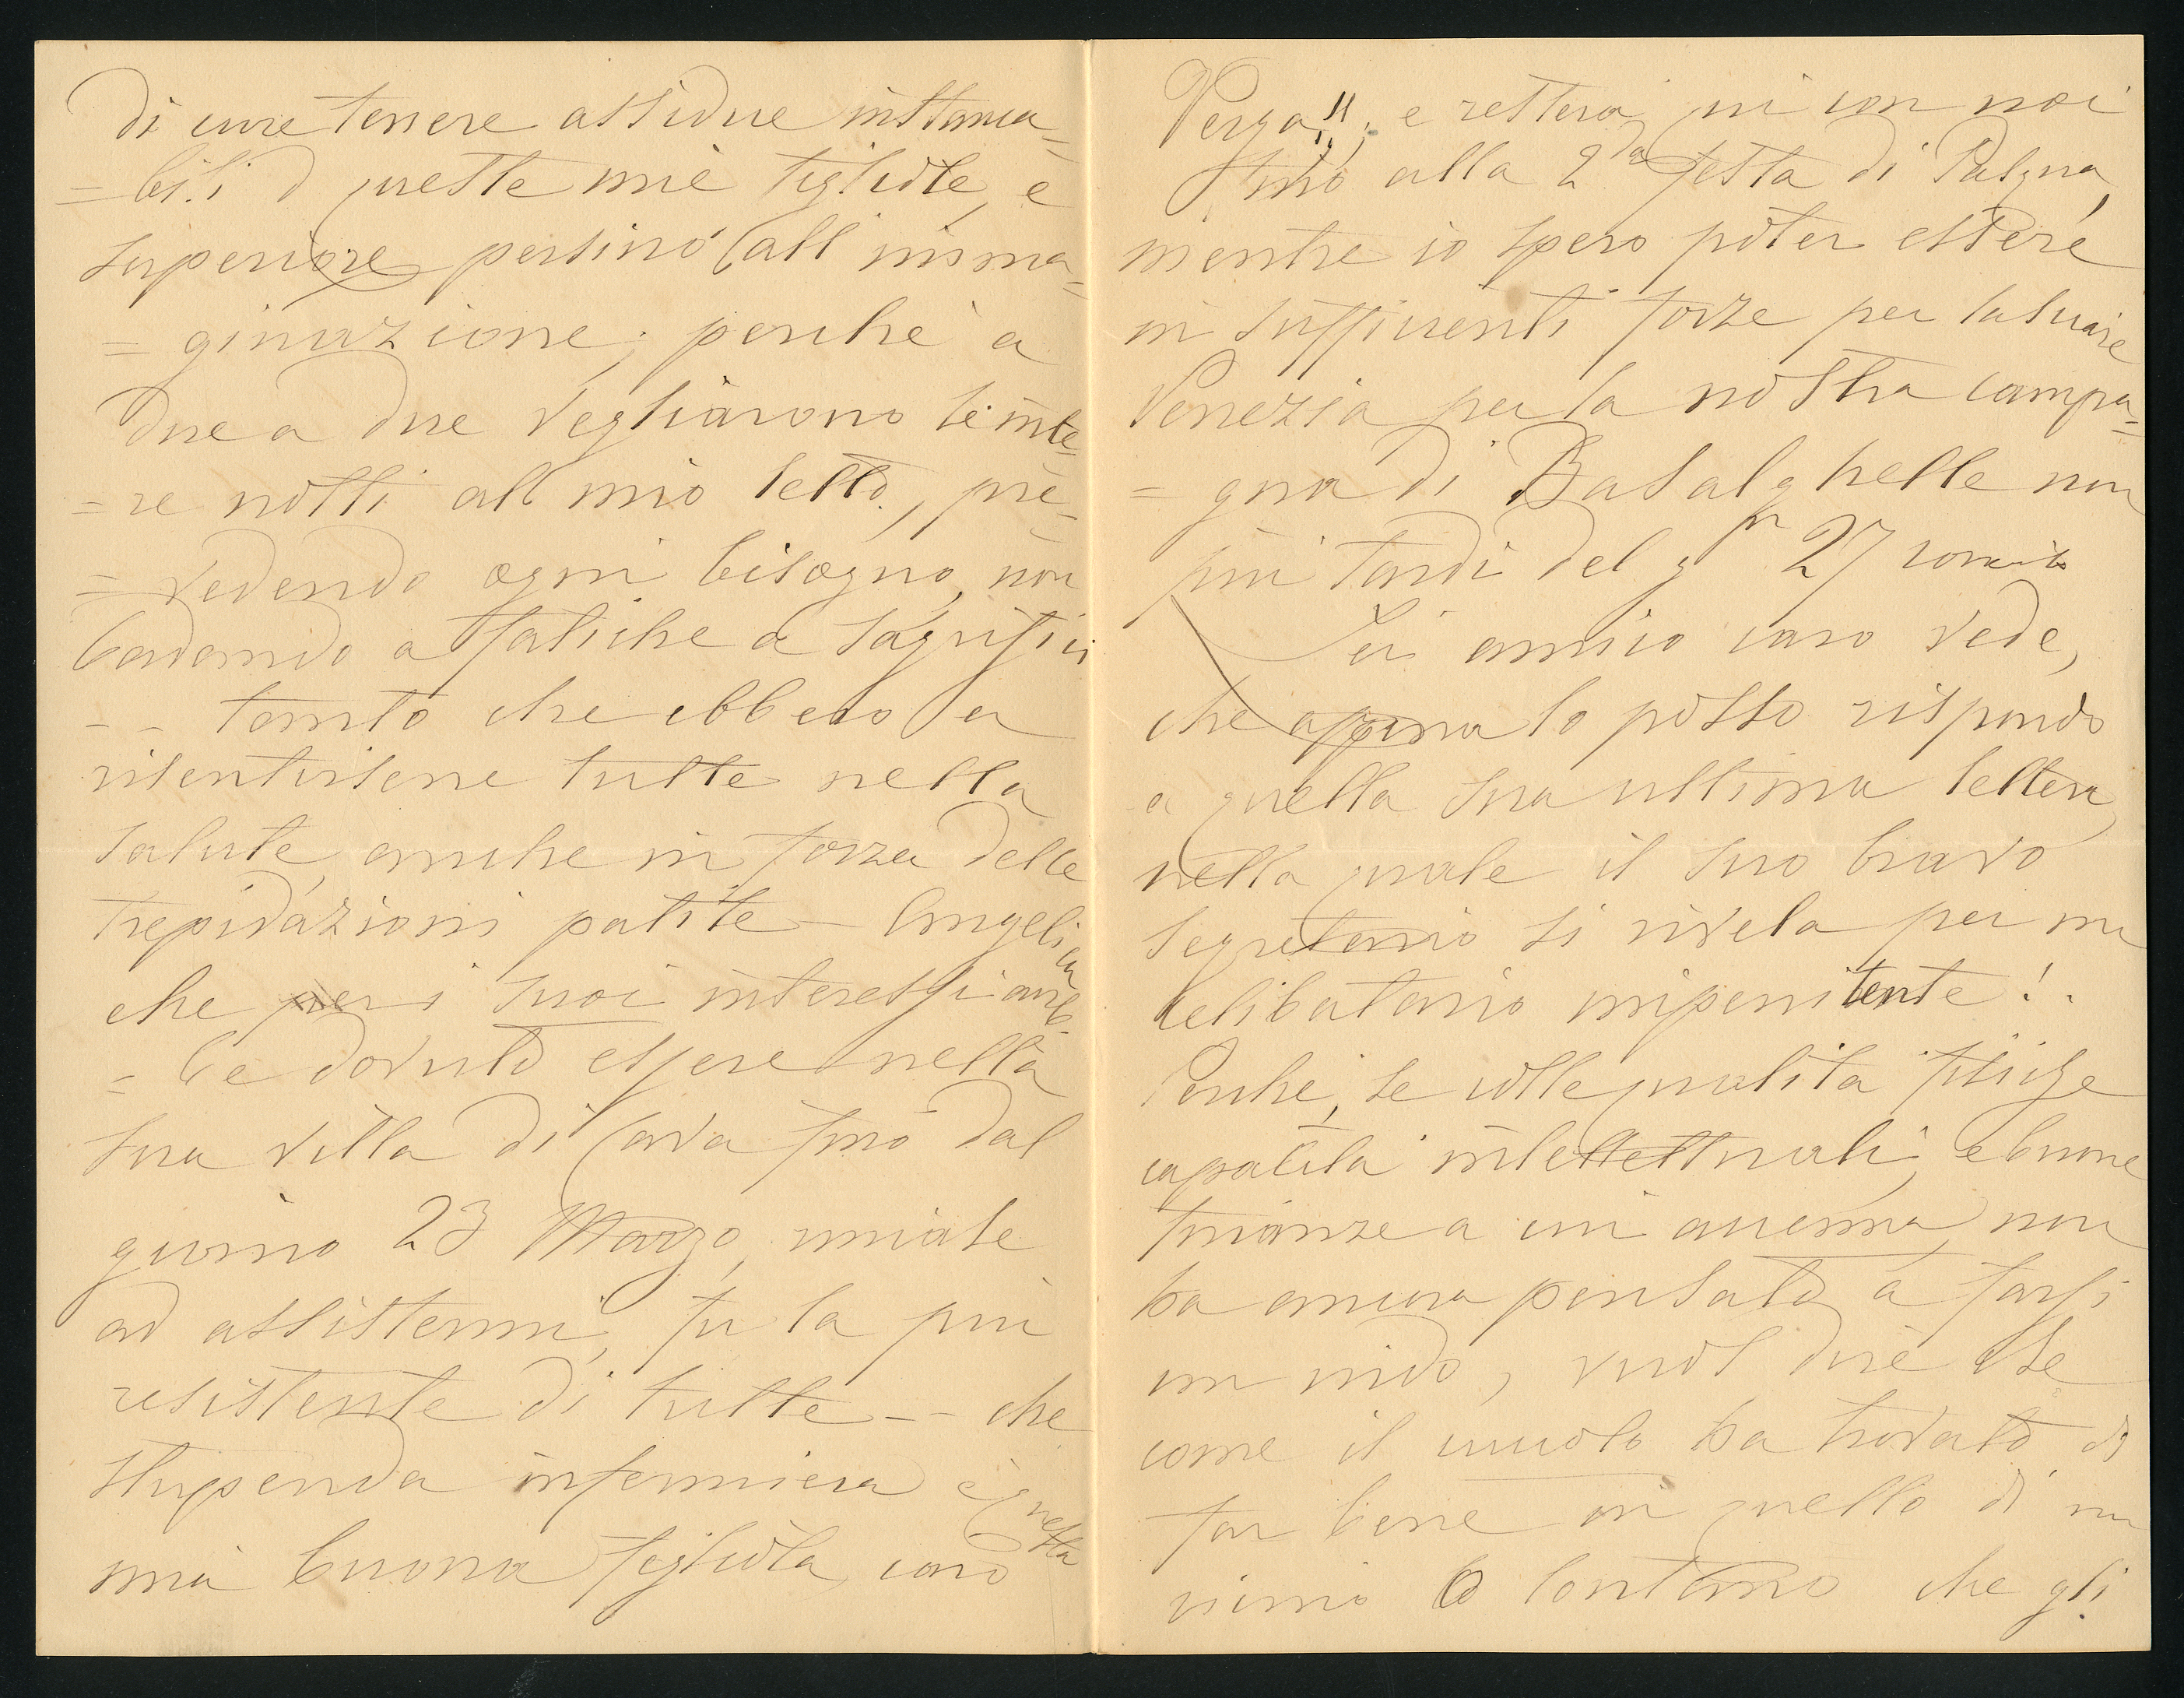 di cure tenere assidue instanca=
=bili d queste mie figliole, e
superiore persino all imma=
=ginazione; perché a
due a due vegliarono le inte=
=re notti al mio letto, pre=
=vedendo ogni bisogno, non
badando a fatiche a sagrifici
- - tanto che ebbero a
risentirsene tutte nella
salute, anche in forza delle
trepidazioni patite - Angelica
che per i suoi interessi avreb-
=be dovuto essere nella
sua villa di Cava fino dal
giorno 23 Marzo, uniale
ad assistermi, fu la più
resistente di tutte -- che
stupenda infermiera è questa
mia buona figliola, caro
Verga!!, e resterà qui con noi
fino alla 2da festa di Pasqua,
mentre io spero poter essere
in sufficienti forze per lasciare
Venezia per la nostra campa=
=gna di Basalghelle non
più tardi del gn 27 corrite
Lei amico caro vede,
che appena lo posso rispondo
a quella sua ultima lettera,
nella quale il suo bravo
segretario si rivela per un
celibatario impenitente!.
Perché, se colle qualità fisiche
capacità intellettuali, e buone
finanze a cui accenna, non
ha ancora pensato a farsi
un nido, vuol dire che
come il cuculo ha trovato di
far bene in quello di un
vicino o lontano che gli